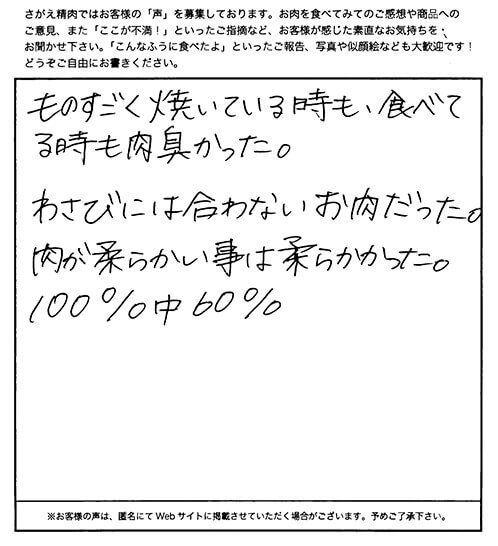 さがえ精肉ではお客様の「声」を募集しております。お肉を食べてみてのご感想や商品への
ご意見、また「ここが不満！」といったご指摘など、お客様が感じた素直なお気持ちを
お聞かせ下さい。「こんなふうに食べたよ」といったご報告、写真や似顔絵なども大歓迎です！
どうぞご自由にお書きください。
ものすごく焼いている時も、食べて
る時も肉臭かった。
わさびには合わないお肉だった。
肉が柔らかい事は柔らかかった。
100%中60%
※お客様の声は、匿名にてWebサイトに掲載させていただく場合がございます。予めご了承下さい。